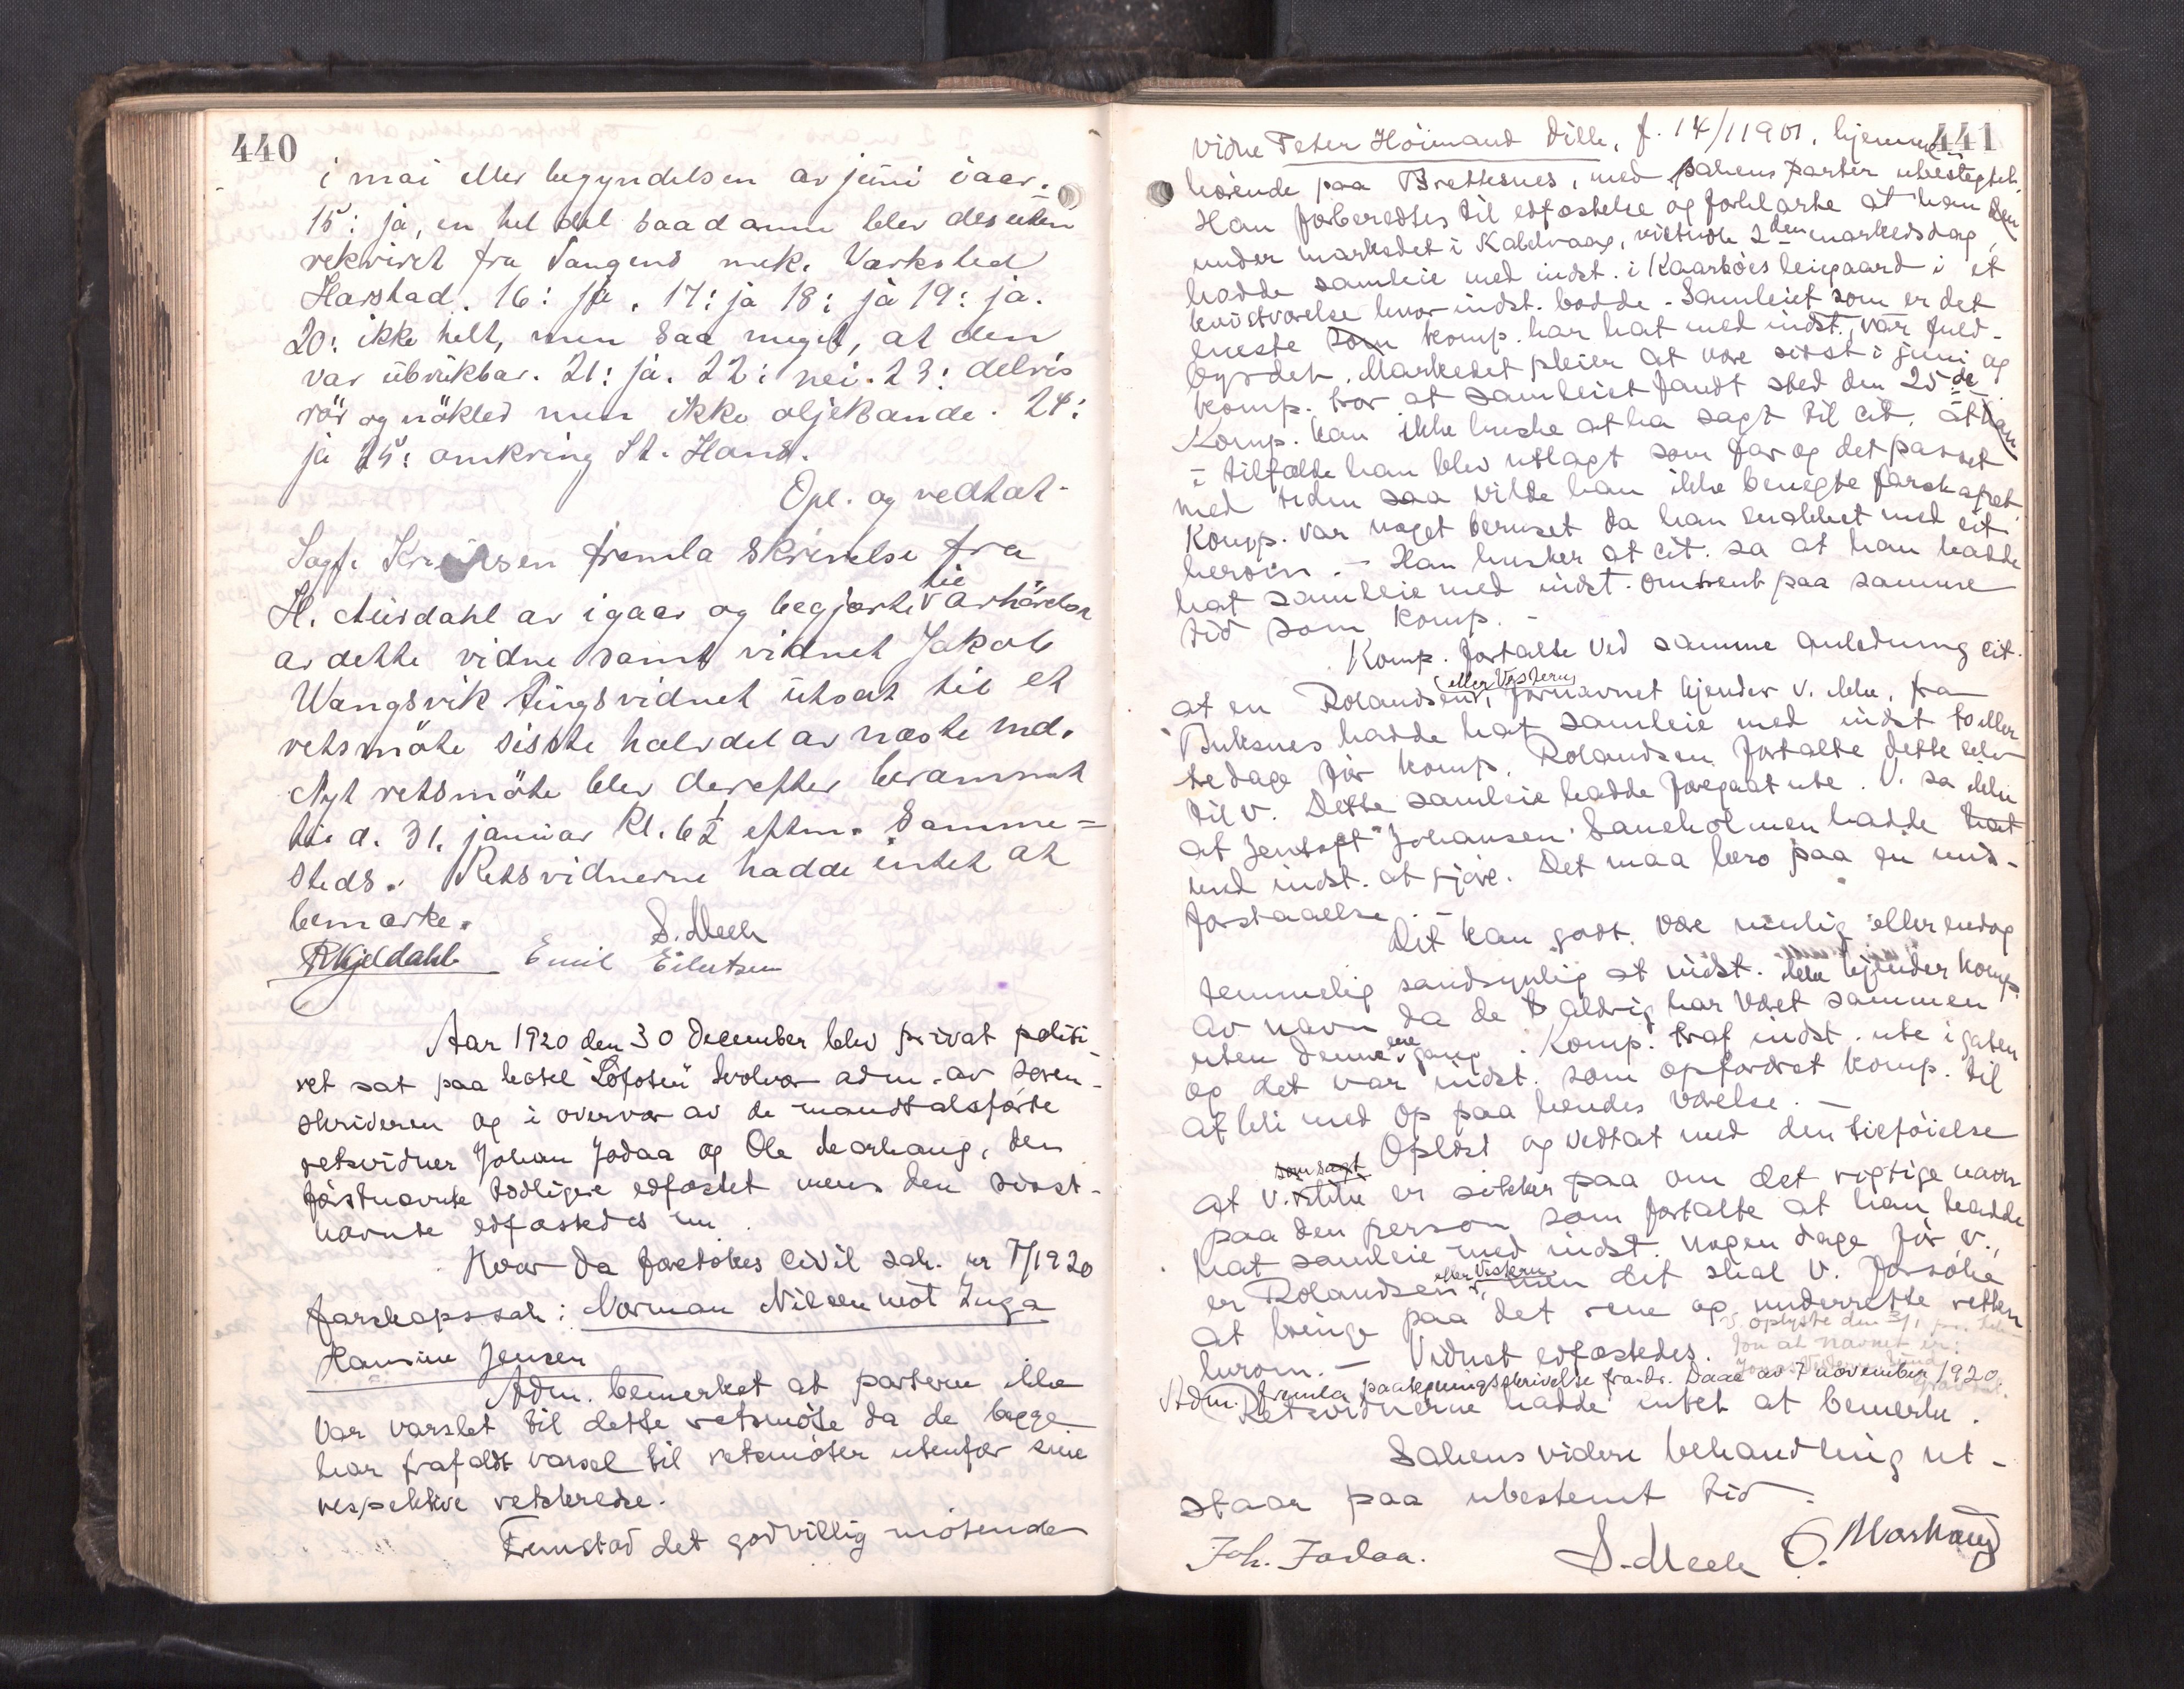 440
i mai eller begyndelsen av juni iaar.
15: ja, en hel del saadanne blev desuten
rekvirert fra Tangens mek. Værksted
Harstad. 16: ja. 17: ja 18: ja 19: ja.
20: ikke helt, men saa meget, at den
var ubrukbar. 21: ja. 22: nei. 23: delvis
rör og nökler men ikke oljekande. 24:
ja 25: omkring St. Hans.
Opl. og vedtat.
Sagf. fremla skrivelse fra
H. Aursdahl av igaar og begjærte til avhörelse
av dette vidne samt vidnet Jakob
Wangsvik tingsvidnet utsat til et
retsmöte sisste halvdel av næste md.
Nyt retsmöte blev derefter berammet
til d. 31. januar Kl. 6½ eftm. Samme=
steds. Retsvidnerne hadde intet at
bemærke.
S. Mech
R Kjeldahl Emil Eilertsen
Aar 1920 den 30 December blev privat politi-
ret sat paa hotel "Lofoten" Svolvær adm. av soren-
skriveren og i overvær av de mandtalsførte
retsvidner Johan Jodaa og Ole Marhaug, den
førstnævnte tidligere edfæstet mens den sisst-
nævnte edfæstedes nu.
Hvor da foretokes civil sak nr 7/1920
farskapssak: Norman Nilsen mot Inga
Hansine Jensen
Adm. bemerket at parterne ikke
var varslet til dette retsmøte da de begge
har frafaldt varsel til retsmøter utenfor sine
respektive retskredse.
Fremstod det godvillig møtende
441
vidne Peter Høimand Dille, f. 14/1 1901, hjemme-
hørende paa Brettesnes, med sakens parter ubeslegtet.
Han forberedtes til edfæstelse og forklarte at han
under markedet i Kabelvaag, vistnok 2den markedsdag,
hadde samleie med indst. i Kaarbøes leiegaard i et
kvistværelse hvor indst. bodde. Samleiet som er det
eneste som komp. har hat med indst., var fuld-
byrdet. Markedet pleier at være sidst i juni og
komp. tror at samleiet fandt sted den 25de
Komp. kan ikke huske at ha sagt til cit. at han
i tilfælde han blev utlagt som far og det passet
med tiden saa vilde han ikke benegte farskapet.
Komp. var noget beruset da han snakket med cit
herom. - Han husker at cit. sa at han hadde
hat samleie med indst. omtrent paa samme
tid som komp. -
Komp. fortalte ved samme anledning cit.
(eller Vestern)
at en Rolandsen, fornavnet kjender v. ikke, fra
Buksnes hadde hat samleie med indst to eller
tre dage før komp. Rolandsen fortalte dette selv
til v. Dette samleie hadde foregaat ute. V. sa ikke
at Jentoft Johansen Sandholmen hadde hat
med indst. at gjøre. Det maa bero paa en mis-
forstaaelse. -
Det kan godt være mulig eller endog
temmelig sandsynlig at indst. ikke kjender komp.
av navn da de aldrig har været sammen
uten denne ene gang. Komp. traf indst. ute i gaten
og det var indst. som opfordret komp. til
at bli med op paa hendes værelse. -
Oplæst og vedtat med den tilføielse
som sagt
at v. ikke er sikker paa om det rigtige navn
paa den person som fortalte at han hadde
hat samleie med indst. nogen dage før v.,
eller Vestern
er Rolandsen, men det skal v. forsøke
at bringe paa det rene og underrette retten
herom. - Vidnet edfæstedes. V. oplyste den 3/1
at navnet er:
Adm. fremla paategningsskrivelse fra dr. Daae av 7 november 1920.
Retsvidnerne hadde intet at bemerke.
Sakens videre behandling ut-
staar paa ubestemt tid.
Joh. Jodaa. S. Mech O. Marhaug